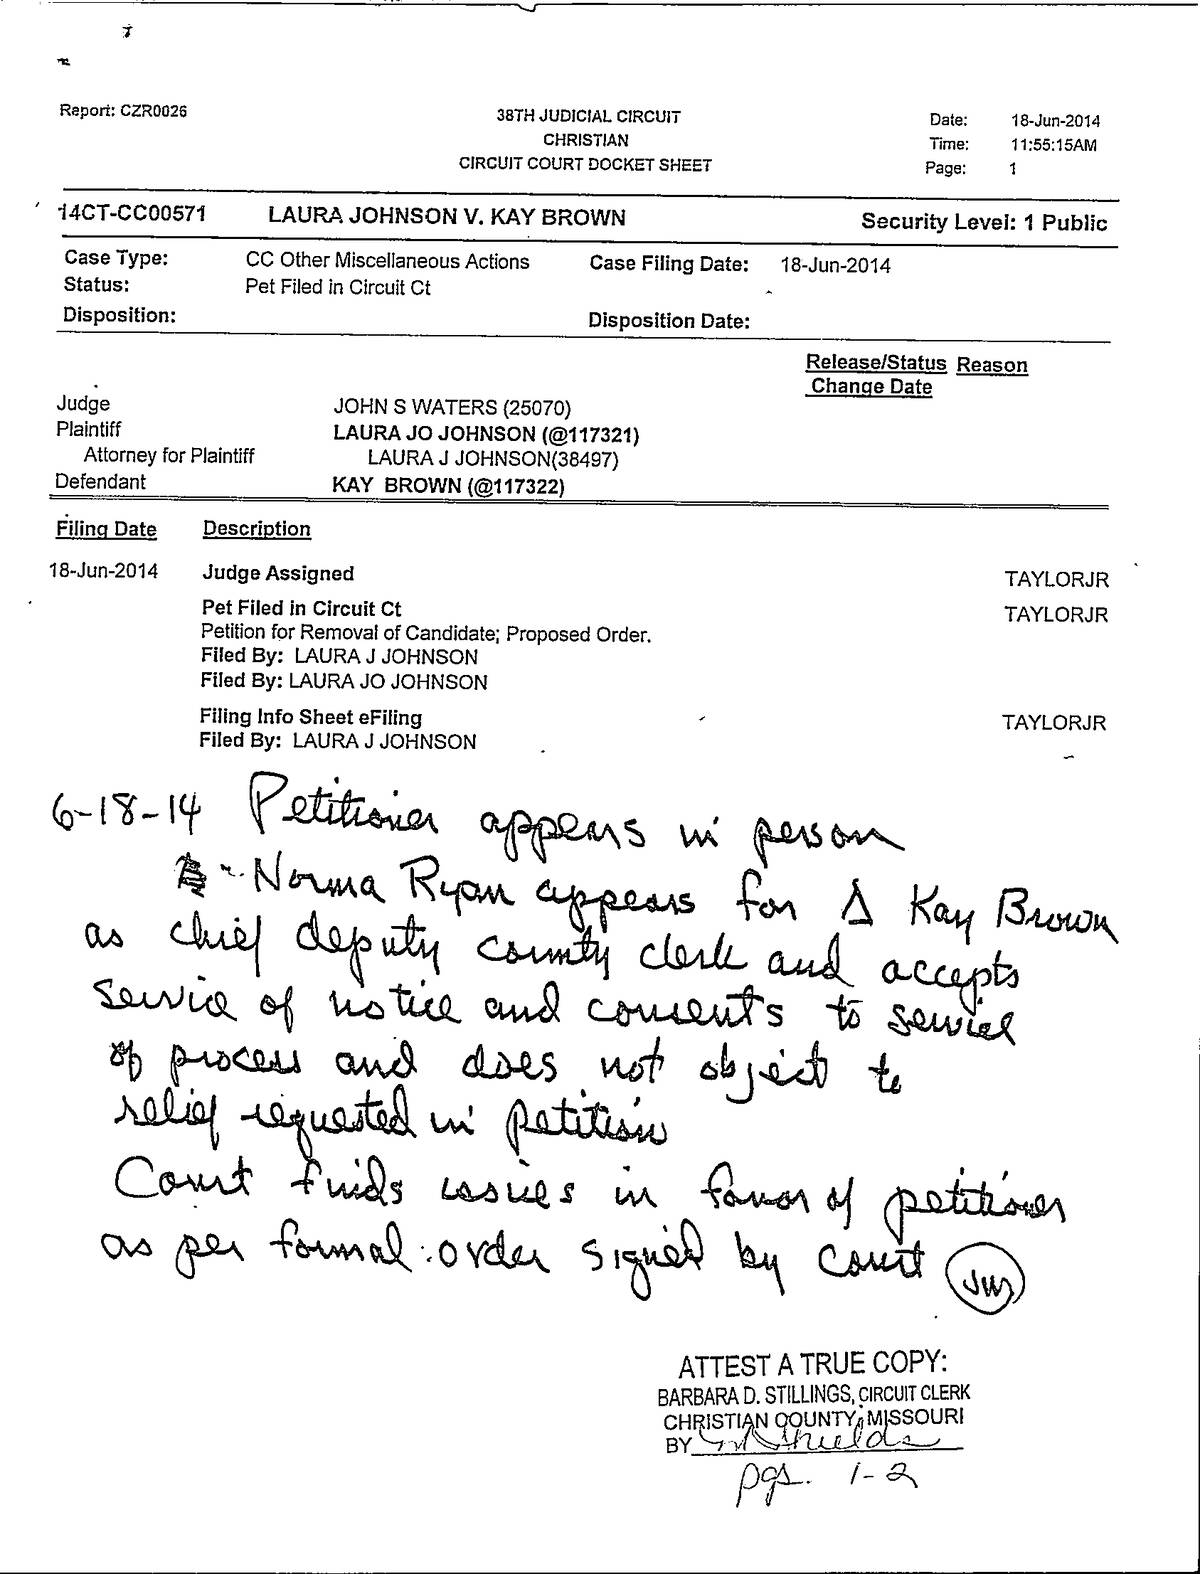 Report: CZR0026
38TH JUDICIAL CIRCUIT
CHRISTIAN
CIRCUIT COURT DOCKET SHEET
Date: 18-Jun-2014
Time: 11:55:15AM
Page: 1
14CT-CC00571 LAURA JOHNSON V. KAY BROWN Security Level: 1 Public
Case Type: CC Other Miscellaneous Actions Case Filing Date: 18-Jun-2014
Status: Pet Filed in Circuit Ct
Disposition: Disposition Date:
Release/Status Reason
Change Date
Judge JOHN S WATERS (25070)
Plaintiff LAURA JO JOHNSON (@117321)
Attorney for Plaintiff LAURA J JOHNSON(38497)
Defendant KAY BROWN (@117322)
Filing Date Description
18-Jun-2014 Judge Assigned TAYLORJR
Pet Filed in Circuit Ct TAYLORJR
Petition for Removal of Candidate; Proposed Order.
Filed By: LAURA J JOHNSON
Filed By: LAURA JO JOHNSON
Filing Info Sheet eFiling TAYLORJR
Filed By: LAURA J JOHNSON
6-18-14 Petitioner appears in person
Norma Ryan appears for Δ Kay Brown
as chief deputy county clerk and accepts
service of notice and consents to service
of process and does not object to
relief requested in petition
Court finds issues in favor of petitioner
as per formal order signed by court JW
ATTEST A TRUE COPY:
BARBARA D. STILLINGS, CIRCUIT CLERK
CHRISTIAN COUNTY, MISSOURI
BY Shields
pgs. 1-2